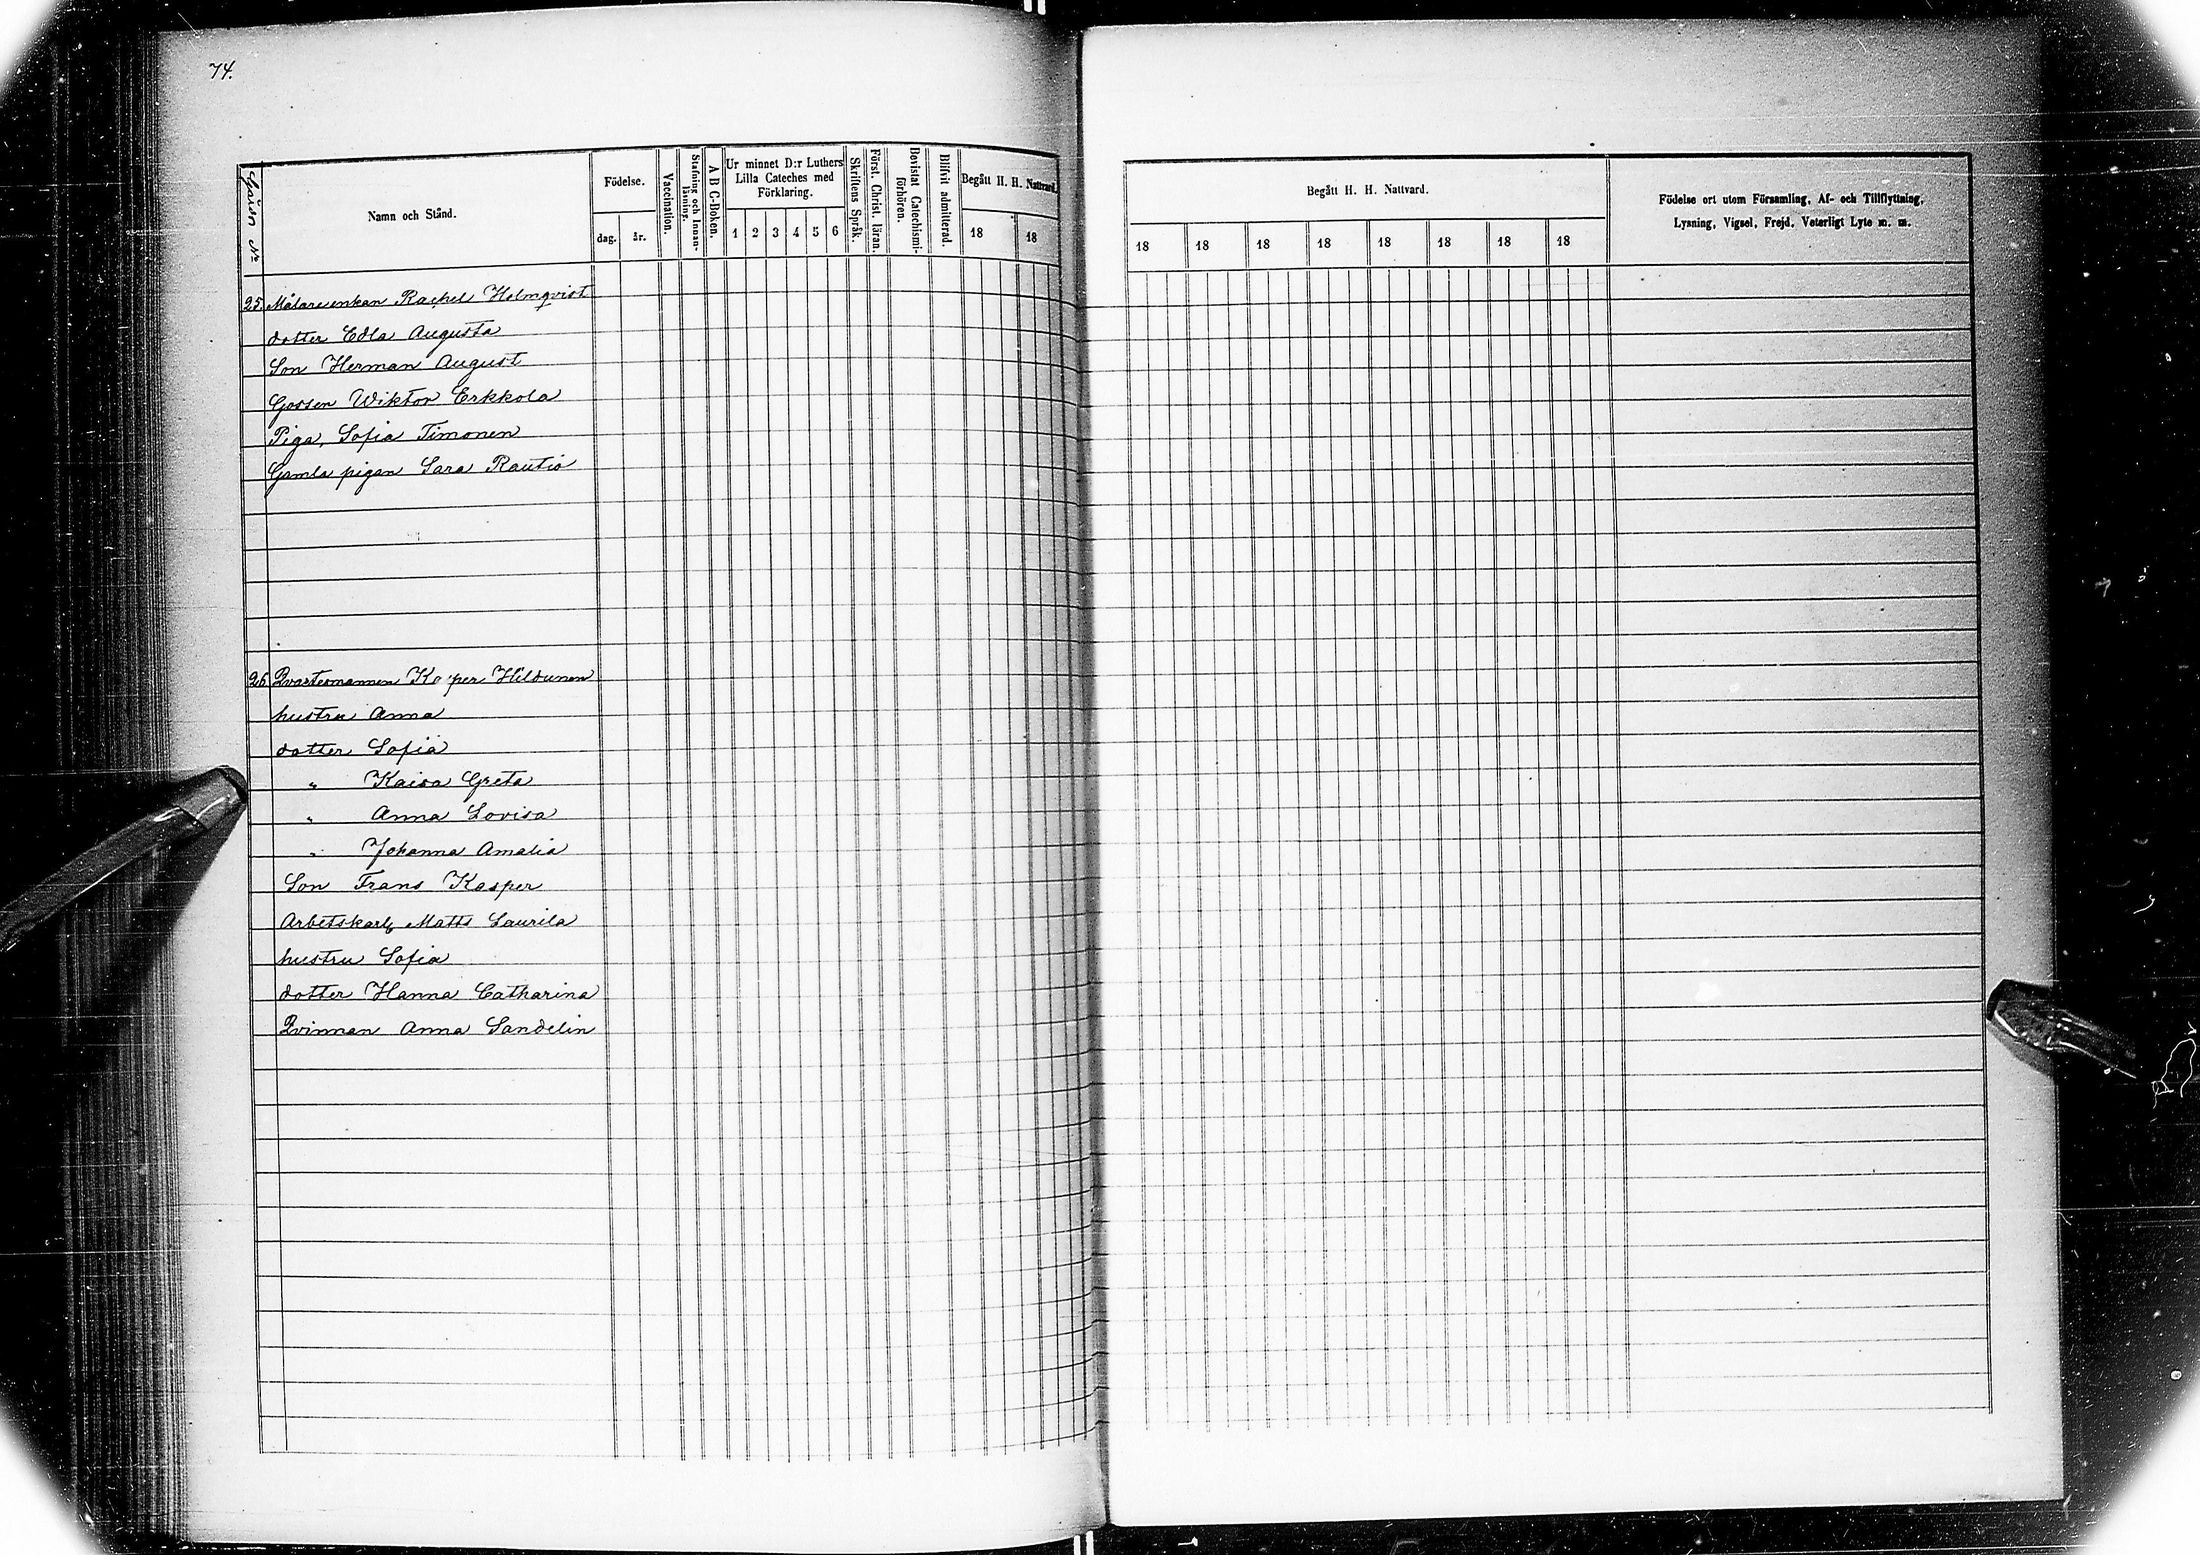 74.
Gård No
Namn och Stånd.
Födelse.
dag. år.
Vaccination.
Stafning och Innan-läsning.
A B C-Boken.
Ur minnet D:r Luthers
Lilla Cateches med
Förklaring.
1 2 3 4 5 6
Skriftens Språk.
Först. Christ. läran.
Bevistat Catechismi-förhören.
Blifvit admitterad.
Begått H. H. Nattvard.
18 18
Begått H. H. Nattvard.
18 18 18 18 18 18 18 18
Födelse ort utom Församling, Af- och Tillflyttning,
Lysning, Vigsel, Frejd, Veterligt Lyte m. m.
25. Målareenkan Rachel Holmqvist
dotter Edla Augusta
Son Herman August
Gossen Wiktor Erkkola
Piga, Sofia Timonen
Gamla pigan Sara Rautio
26 Qvartermannen Kasper Hildunen
hustru Anna
dotter Sofia
" Kaisa Greta
" Anna Lovisa
" Johanna Amalia
Son Frans Kasper
Arbetskarl Matts Laurila
hustru Sofia
dotter Hanna Catharina
Qvinnan Anna Sandelin